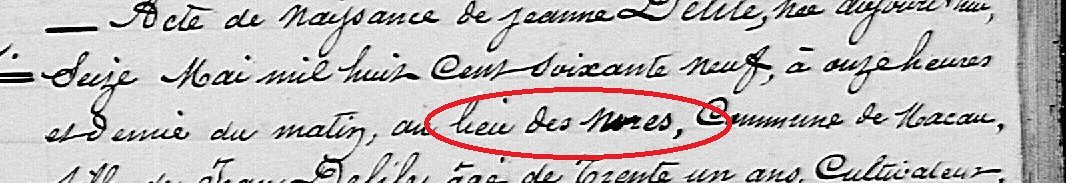 Acte de naissance de jeanne Delile, née aujourd'hui,
Seize Mai mil huit Cent Soixante neuf, à onze heures
et demie du matin, au lieu des , Commune de Macau,
fille de Jean Delile âgé de Trente un ans, Cultivateur